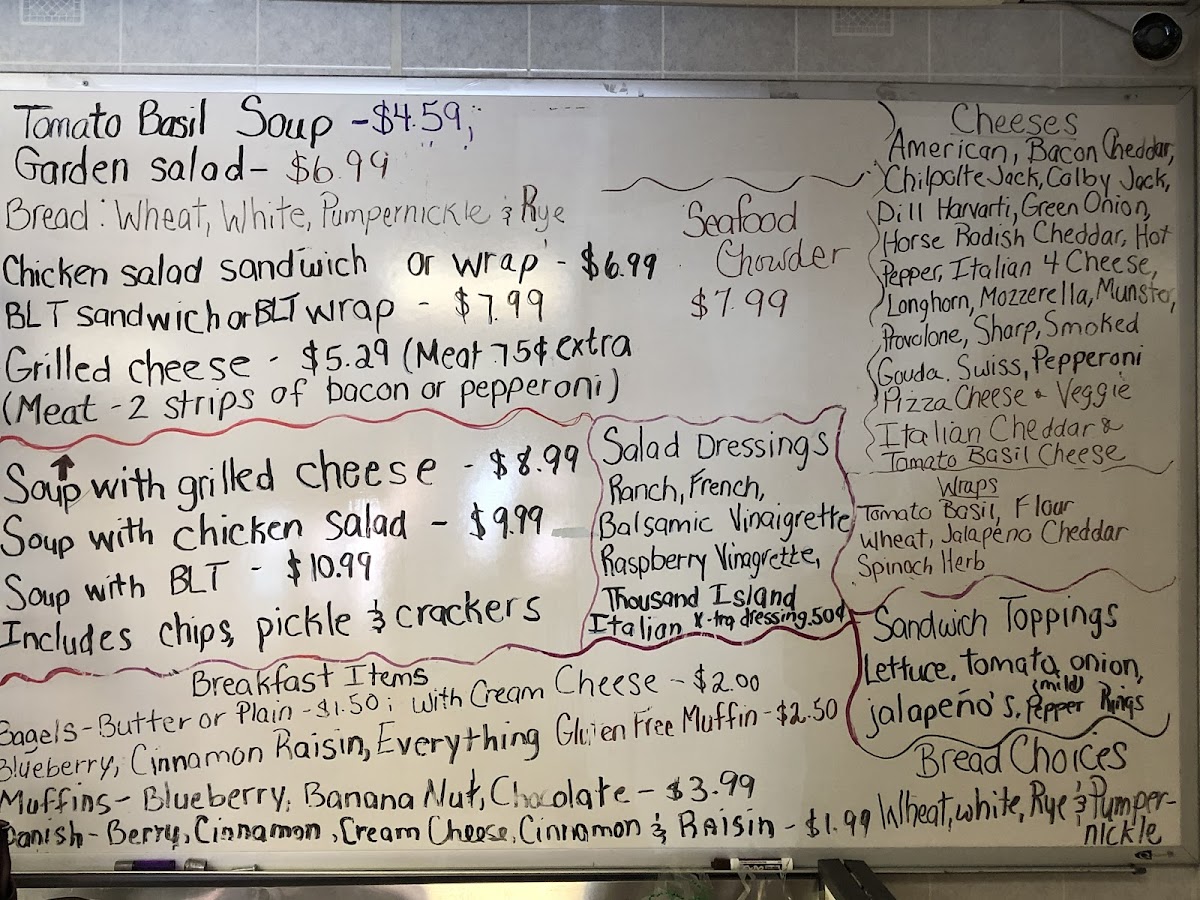 Tomato Basil Soup - $4.59;
Garden salad - $6.99
Bread: Wheat, White, Pumpernickle & Rye
Chicken salad sandwich or wrap - $6.99
BLT sandwich or BLT wrap - $7.99
Grilled cheese - $5.29 (Meat 75¢ extra
(Meat - 2 strips of bacon or pepperoni)
Seafood
Chowder
$7.99
Cheeses
American, Bacon Cheddar,
Chilpolte Jack, Colby Jack,
Dill Harvarti, Green Onion,
Horse Radish Cheddar, Hot
Pepper, Italian 4 Cheese,
Longhorn, Mozzerella, Munster,
Provolone, Sharp, Smoked
Gouda. Swiss, Pepperoni
Pizza Cheese & Veggie
Italian Cheddar &
Tomato Basil Cheese
Soup with grilled cheese - $8.99
Soup with chicken salad - $9.99
Soup with BLT - $10.99
Includes chips, pickle & crackers
Salad Dressings
Ranch, French,
Balsamic Vinaigrette
Raspberry Vinagrette,
Thousand Island
Italian X-tra dressing .50¢
Wraps
Tomato Basil, Flour
Wheat, Jalapeno Cheddar
Spinach Herb
Sandwich Toppings
Lettuce, tomato, onion,
(mild)
jalapeño's, Pepper Rings
Breakfast Items
Bagels - Butter or Plain - $1.50; with Cream Cheese - $2.00
Blueberry, Cinnamon Raisin, Everything Gluten Free Muffin - $2.50
Muffins - Blueberry, Banana Nut, Chocolate - $3.99
Danish - Berry, Cinnamon, Cream Cheese, Cinnamon & Raisin - $1.99
Bread Choices
Wheat, white, Rye & Pumper-
nickle